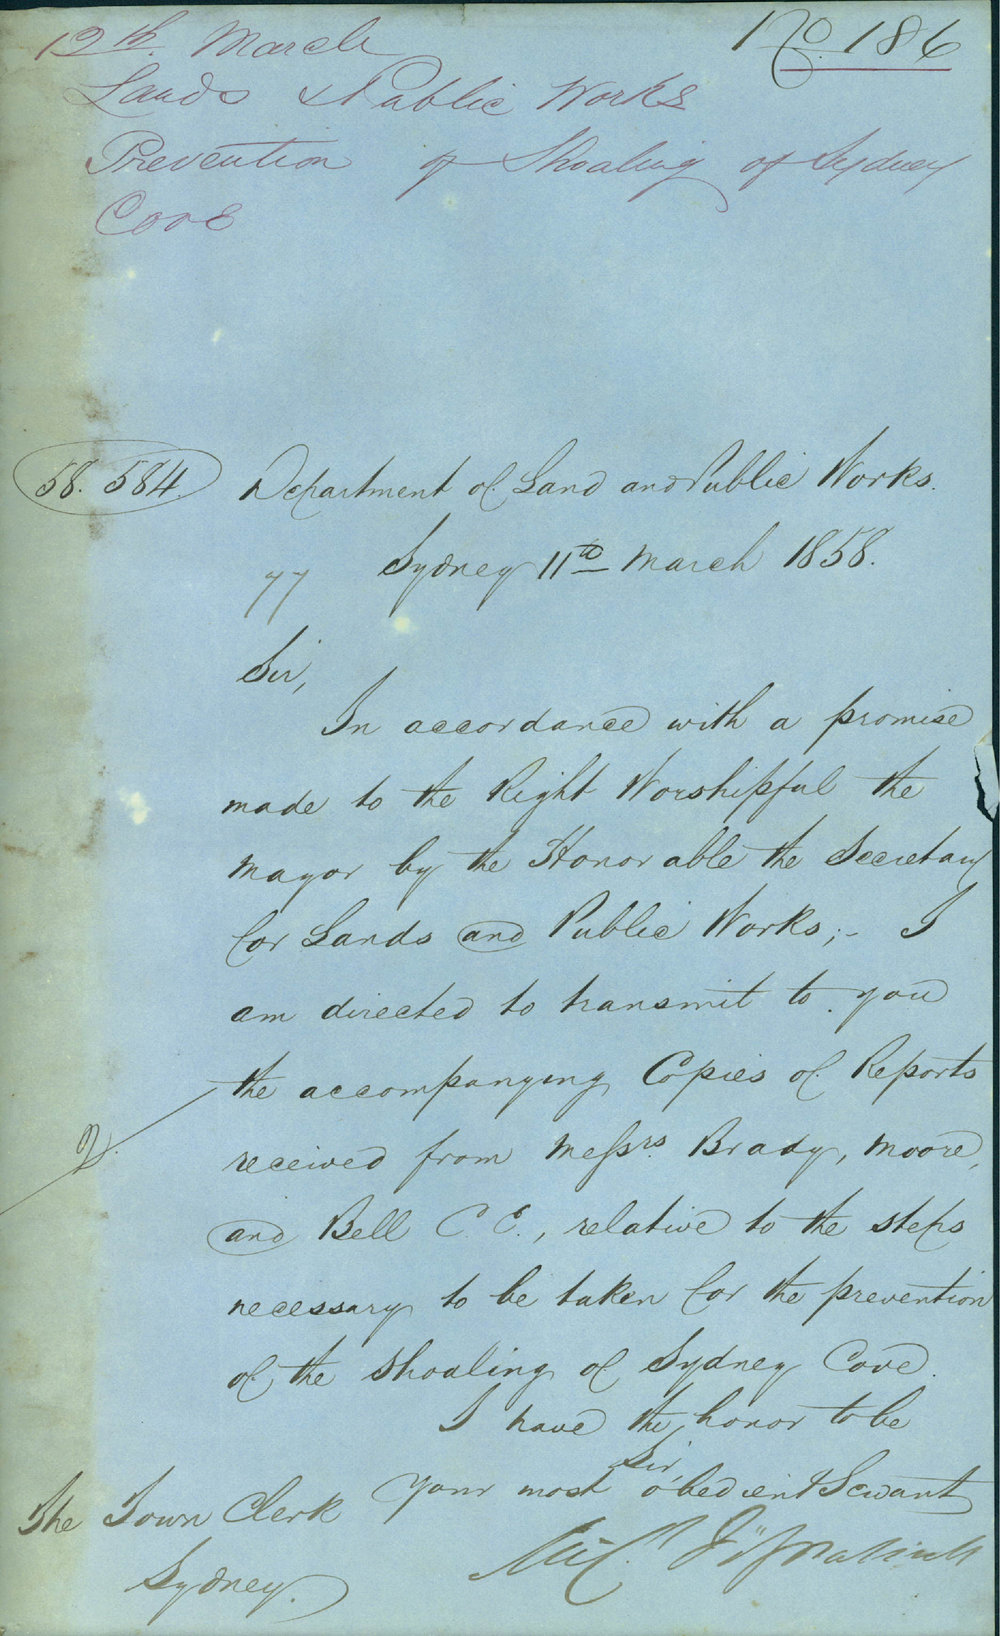 12th. March
No. 186
Lands & Public Works
Prevention of Shoaling of Sydney
Cove
58. 584.
Department of Land and Public Works.
77
Sydney 11th March 1858.
Sir,
In accordance with a promise
made to the Right Worshipful the
Mayor by the Honorable the Secretary
for Lands and Public Works;- I
am directed to transmit to you
the accompanying Copies of Reports
2.
received from Messrs. Brady, Moore,
and Bell C E., relative to the steps
necessary to be taken for the prevention
of the Shoaling of Sydney Cove.
I have the honor to be
Sir,
Your most obedient Servant
The Town Clerk
Michl Fitzpatrick
Sydney.